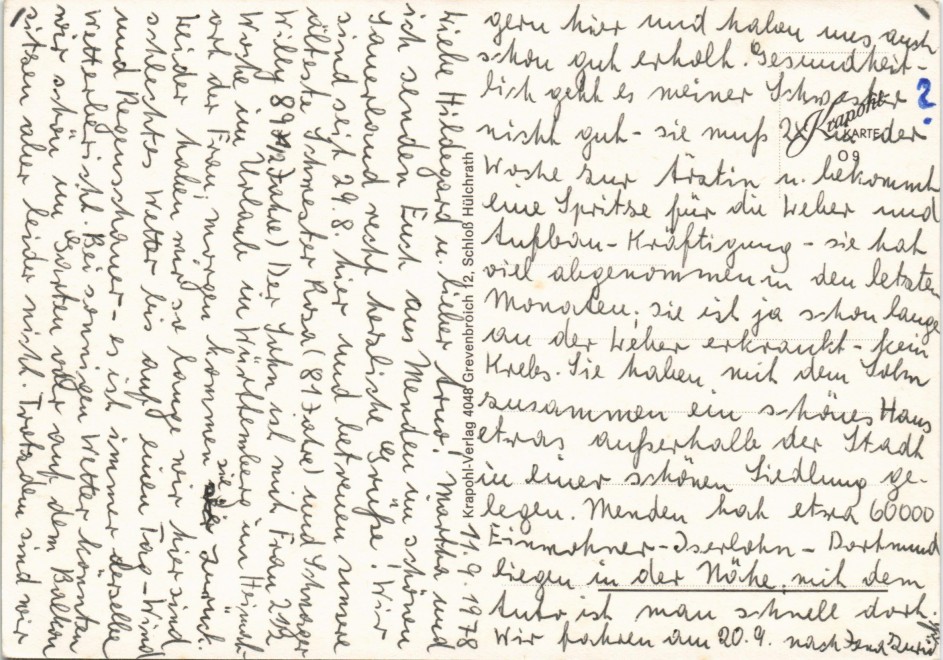 11.9.1978
Liebe Hildegard u. lieber Arno! Martha und
ich senden Euch aus Menden im schönen
Sauerland recht herzliche Grüße! Wir
sind seit 29.8. hier und betreuen unsere
älteste Schwester Rosa (81 Jahre) und Schwager
Willy 89 Jahre) Der Sohn ist mit Frau 2 1/2
Woche im Urlaub in Württemberg im Heimat-
ort der Frau, morgen kommen sie zurück.
Leider haben wir so lange wir hier sind
schlechtes Wetter bis auf einen Tag - Wind
und Regenschauer - es ist immer derselbe
Wetterbericht. Bei sonnigen Wetter könnten
wir schön im Garten oder auf dem Balkon
sitzen aber leider nicht. Trotzdem sind wir
gern hier und haben uns auch
schon gut erholt. Gesundheit-
lich geht es meiner Schwester
nicht gut - sie muß 2x in der
Woche zur Ärztin u. bekommt
eine Spritze für die Leber und
Aufbau-Kräftigung - sie hat
viel abgenommen in den letzten
Monaten. Sie ist ja schon lange
an der Leber erkrankt - kein
Krebs. Sie haben mit dem Sohn
zusammen ein schönes Haus
etwas außerhalb der Stadt
in einer schönen Siedlung ge-
legen. Menden hat etwa 60000
Einwohner - Iserlohn - Dortmund
liegen in der Nähe, mit dem
Auto ist man schnell dort.
Wir fahren am 20.9. nach Jena zurück
?
Krapohl-
KARTE
09
Krapohl-Verlag 4048 Grevenbroich 12, Schloß Hülchrath